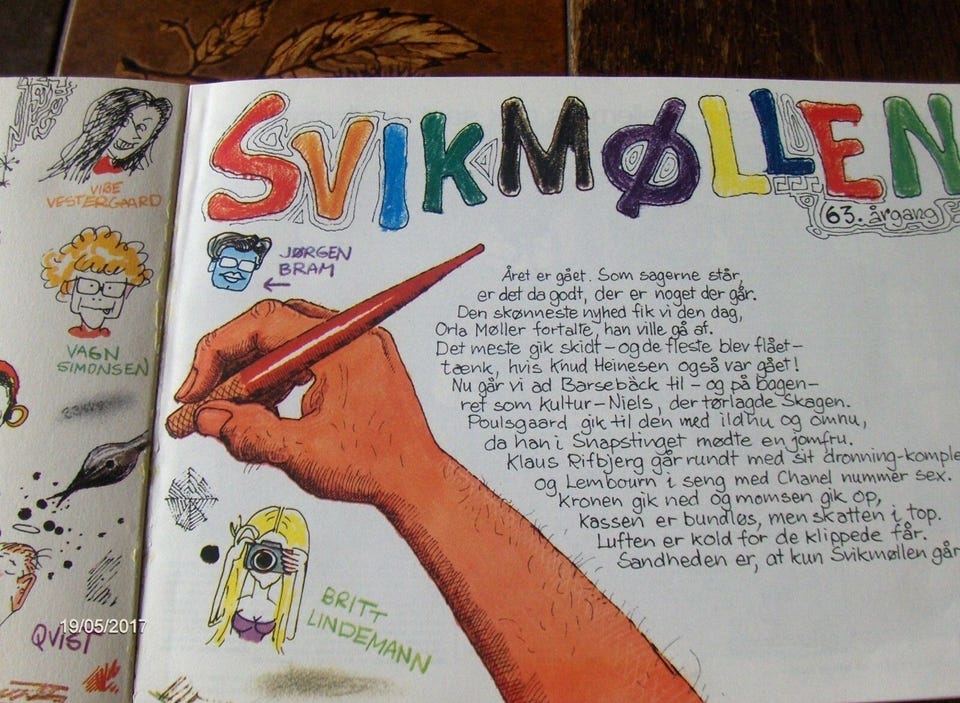 VIBE
VESTERGAARD
VAGN
SIMONSEN
QVIST
19/05/2017
SVIKMØLLEN
63. årgang
JØRGEN
BRAM
Året er gået. Som sagerne står,
er det da godt, der er noget der går.
Den skønneste nyhed fik vi den dag,
Orla Møller fortalte, han ville gå af.
Det meste gik skidt – og de fleste blev flået –
tænk, hvis Knud Heinesen også var gået!
Nu går vi ad Barsebäck til – og på bagen –
ret som kultur – Niels, der tørlagde Skagen.
Poulsgaard gik til den med ildhu og omhu,
da han i Snapstinget mødte en jomfru.
Klaus Rifbjerg går rundt med sit dronning-komple
og Lembourn i seng med Chanel nummer sex.
Kronen gik ned og momsen gik op,
kassen er bundløs, men skatten i top.
Luften er kold for de klippede får.
Sandheden er, at kun Svikmøllen går
BRITT
LINDEMANN